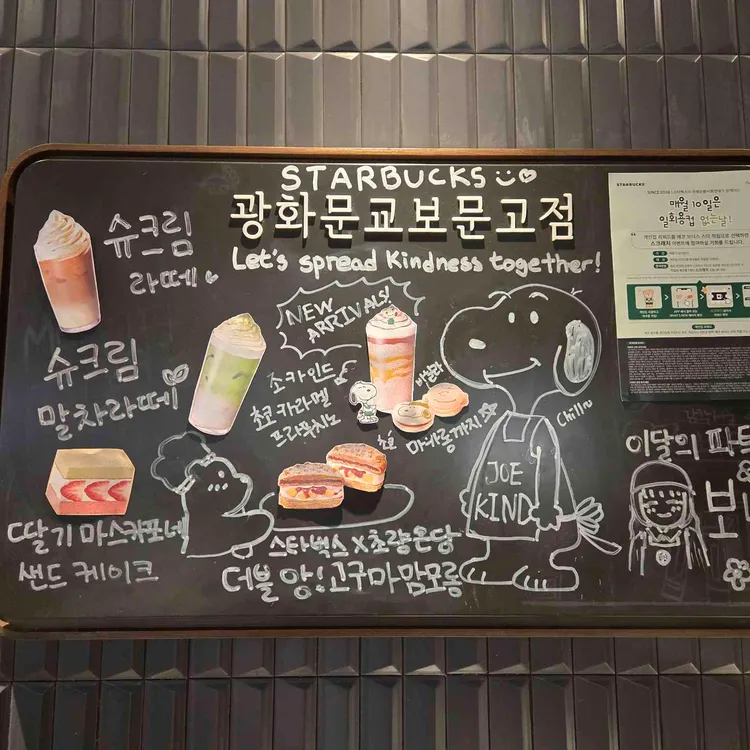 STARBUCKS
광화문교보문고점
Let's spread Kindness together!
슈크림
라떼
슈크림
말차라떼
NEW
ARRIVALS!
조카인드
쵸코카라멜
프라푸치노
바닐라
쵸코
마카롱까지
Chill~
JOE
KIND
딸기 마스카포네
샌드 케이크
스타벅스 X 초량온당
더블 앙! 고구마맘모롱
STARBUCKS
매월 10일은
일회용컵 없는날!
이달의 파트
보